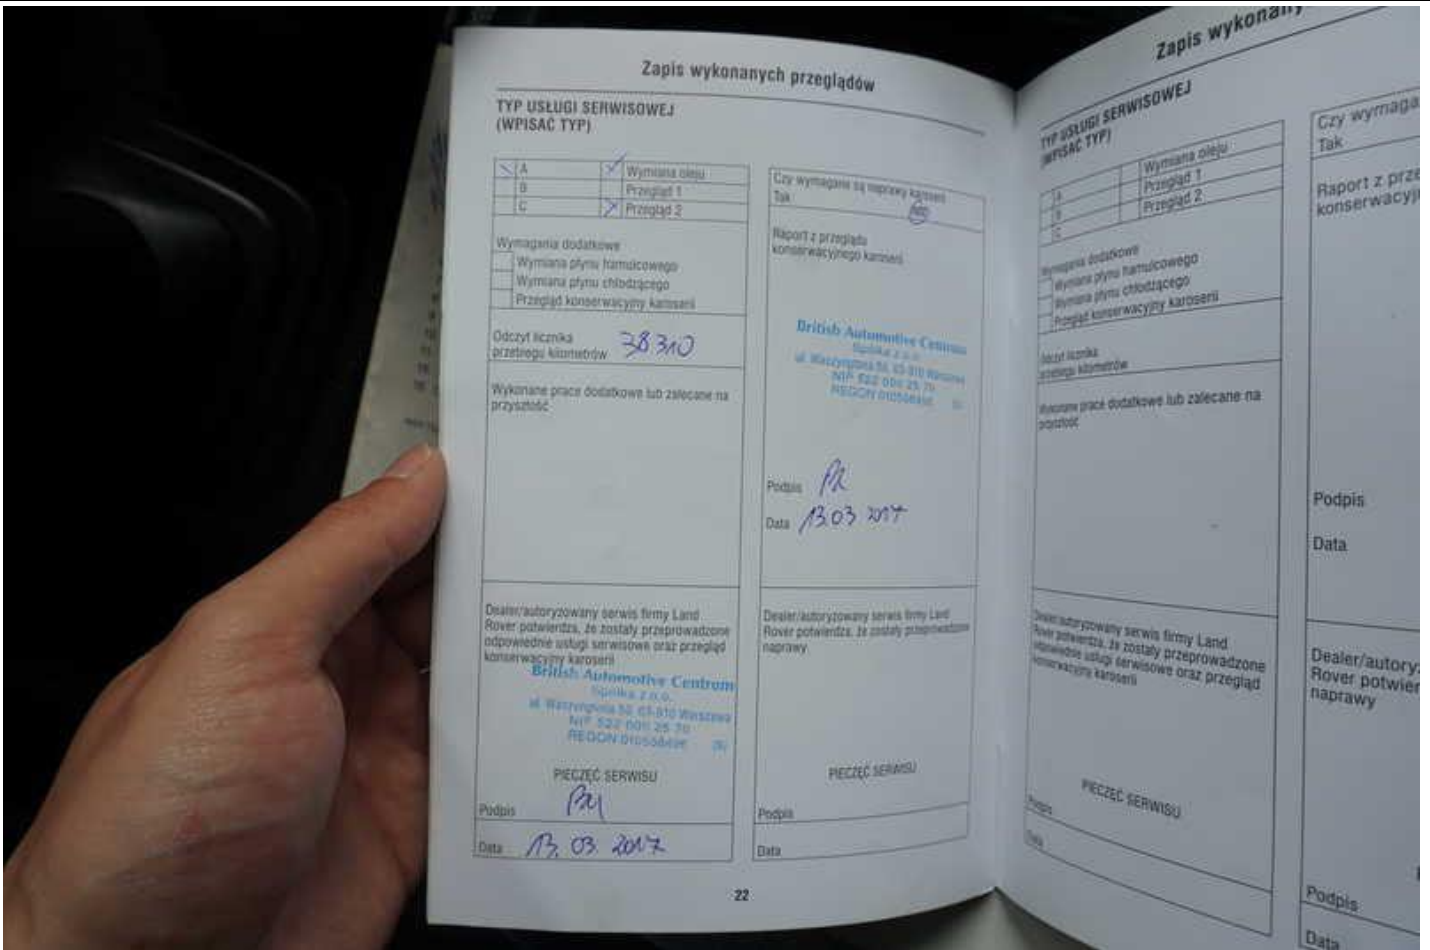 Zapis wykonanych przeglądów
TYP USŁUGI SERWISOWEJ
(WPISAĆ TYP)
A
Wymiana oleju
B
Przegląd 1
C
Przegląd 2
Wymagania dodatkowe
Wymiana płynu hamulcowego
Wymiana płynu chłodzącego
Przegląd konserwacyjny karoserii
Odczyt licznika
przebiegu kilometrów 38310
Wykonane prace dodatkowe lub zalecane na
przyszłość
Dealer/autoryzowany serwis firmy Land
Rover potwierdza, że zostały przeprowadzone
odpowiednie usługi serwisowe oraz przegląd
konserwacyjny karoserii
British Automotive Centrum
Spółka z o.o.
ul. Waszyngtona 50, 03-910 Warszawa
NIP 522 000 25 70
REGON
PIECZĘĆ SERWISU
Podpis
Data 13. 03. 2017
Czy wymagane są naprawy karoserii
Tak
Raport z przeglądu
konserwacyjnego karoserii
British Automotive Centrum
Spółka z o.o.
ul. Waszyngtona 50, 03-910 Warszawa
NIP 522 000 25 70
REGON
Podpis
Data 13.03 2017
Dealer/autoryzowany serwis firmy Land
Rover potwierdza, że zostały przeprowadzone
naprawy
PIECZĘĆ SERWISU
Podpis
Data
22
Zapis wykonany
TYP USŁUGI SERWISOWEJ
(WPISAĆ TYP)
A
Wymiana oleju
B
Przegląd 1
C
Przegląd 2
Wymagania dodatkowe
Wymiana płynu hamulcowego
Wymiana płynu chłodzącego
Przegląd konserwacyjny karoserii
Odczyt licznika
przebiegu kilometrów
Wykonane prace dodatkowe lub zalecane na
przyszłość
Dealer/autoryzowany serwis firmy Land
Rover potwierdza, że zostały przeprowadzone
odpowiednie usługi serwisowe oraz przegląd
konserwacyjny karoserii
PIECZĘĆ SERWISU
Podpis
Data
Czy wymaga
Tak
Raport z prze
konserwacyj
Podpis
Data
Dealer/autory
Rover potwier
naprawy
Podpis
Data